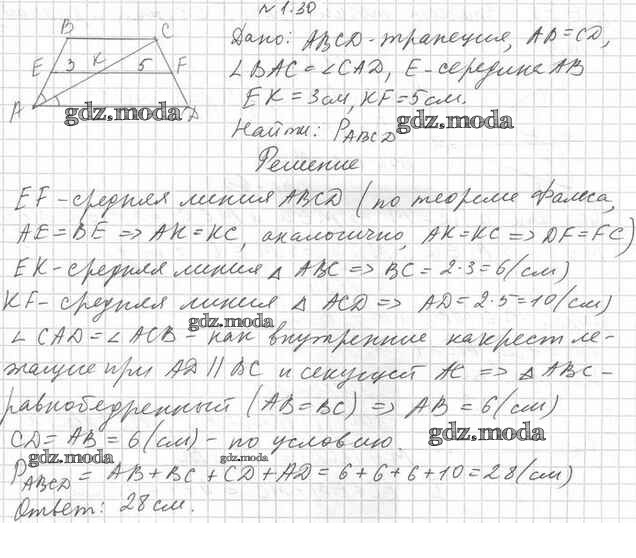 № 1.30
B C
Дано: ABCD - трапеция, AB = CD,
E 3 K 5 F
∠BAC = ∠CAD, E - середина AB
EK = 3 см, KF = 5 см.
A D
gdz.moda
Найти: P_ABCD
gdz.moda
Решение
EF - средняя линия ABCD (по теореме Фалеса,
AE = BE => AK = KC, аналогично, AK = KC => DF = FC)
EK - средняя линия △ ABC => BC = 2·3 = 6 (см)
KF - средняя линия △ ACD => AD = 2·5 = 10 (см)
gdz.moda
∠CAD = ∠ACB - как внутренние накрест ле-
жащие при AD || BC и секущей AC => △ ABC -
равнобедренный (AB = BC) => AB = 6 (см)
CD = AB = 6 (см) - по условию.
gdz.moda
gdz.moda
gdz.moda
P_ABCD = AB + BC + CD + AD = 6 + 6 + 6 + 10 = 28 (см)
Ответ: 28 см.